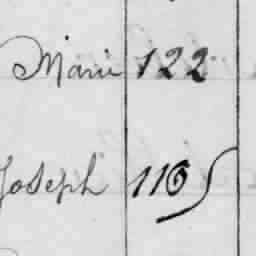 Marie 122
Joseph 1165